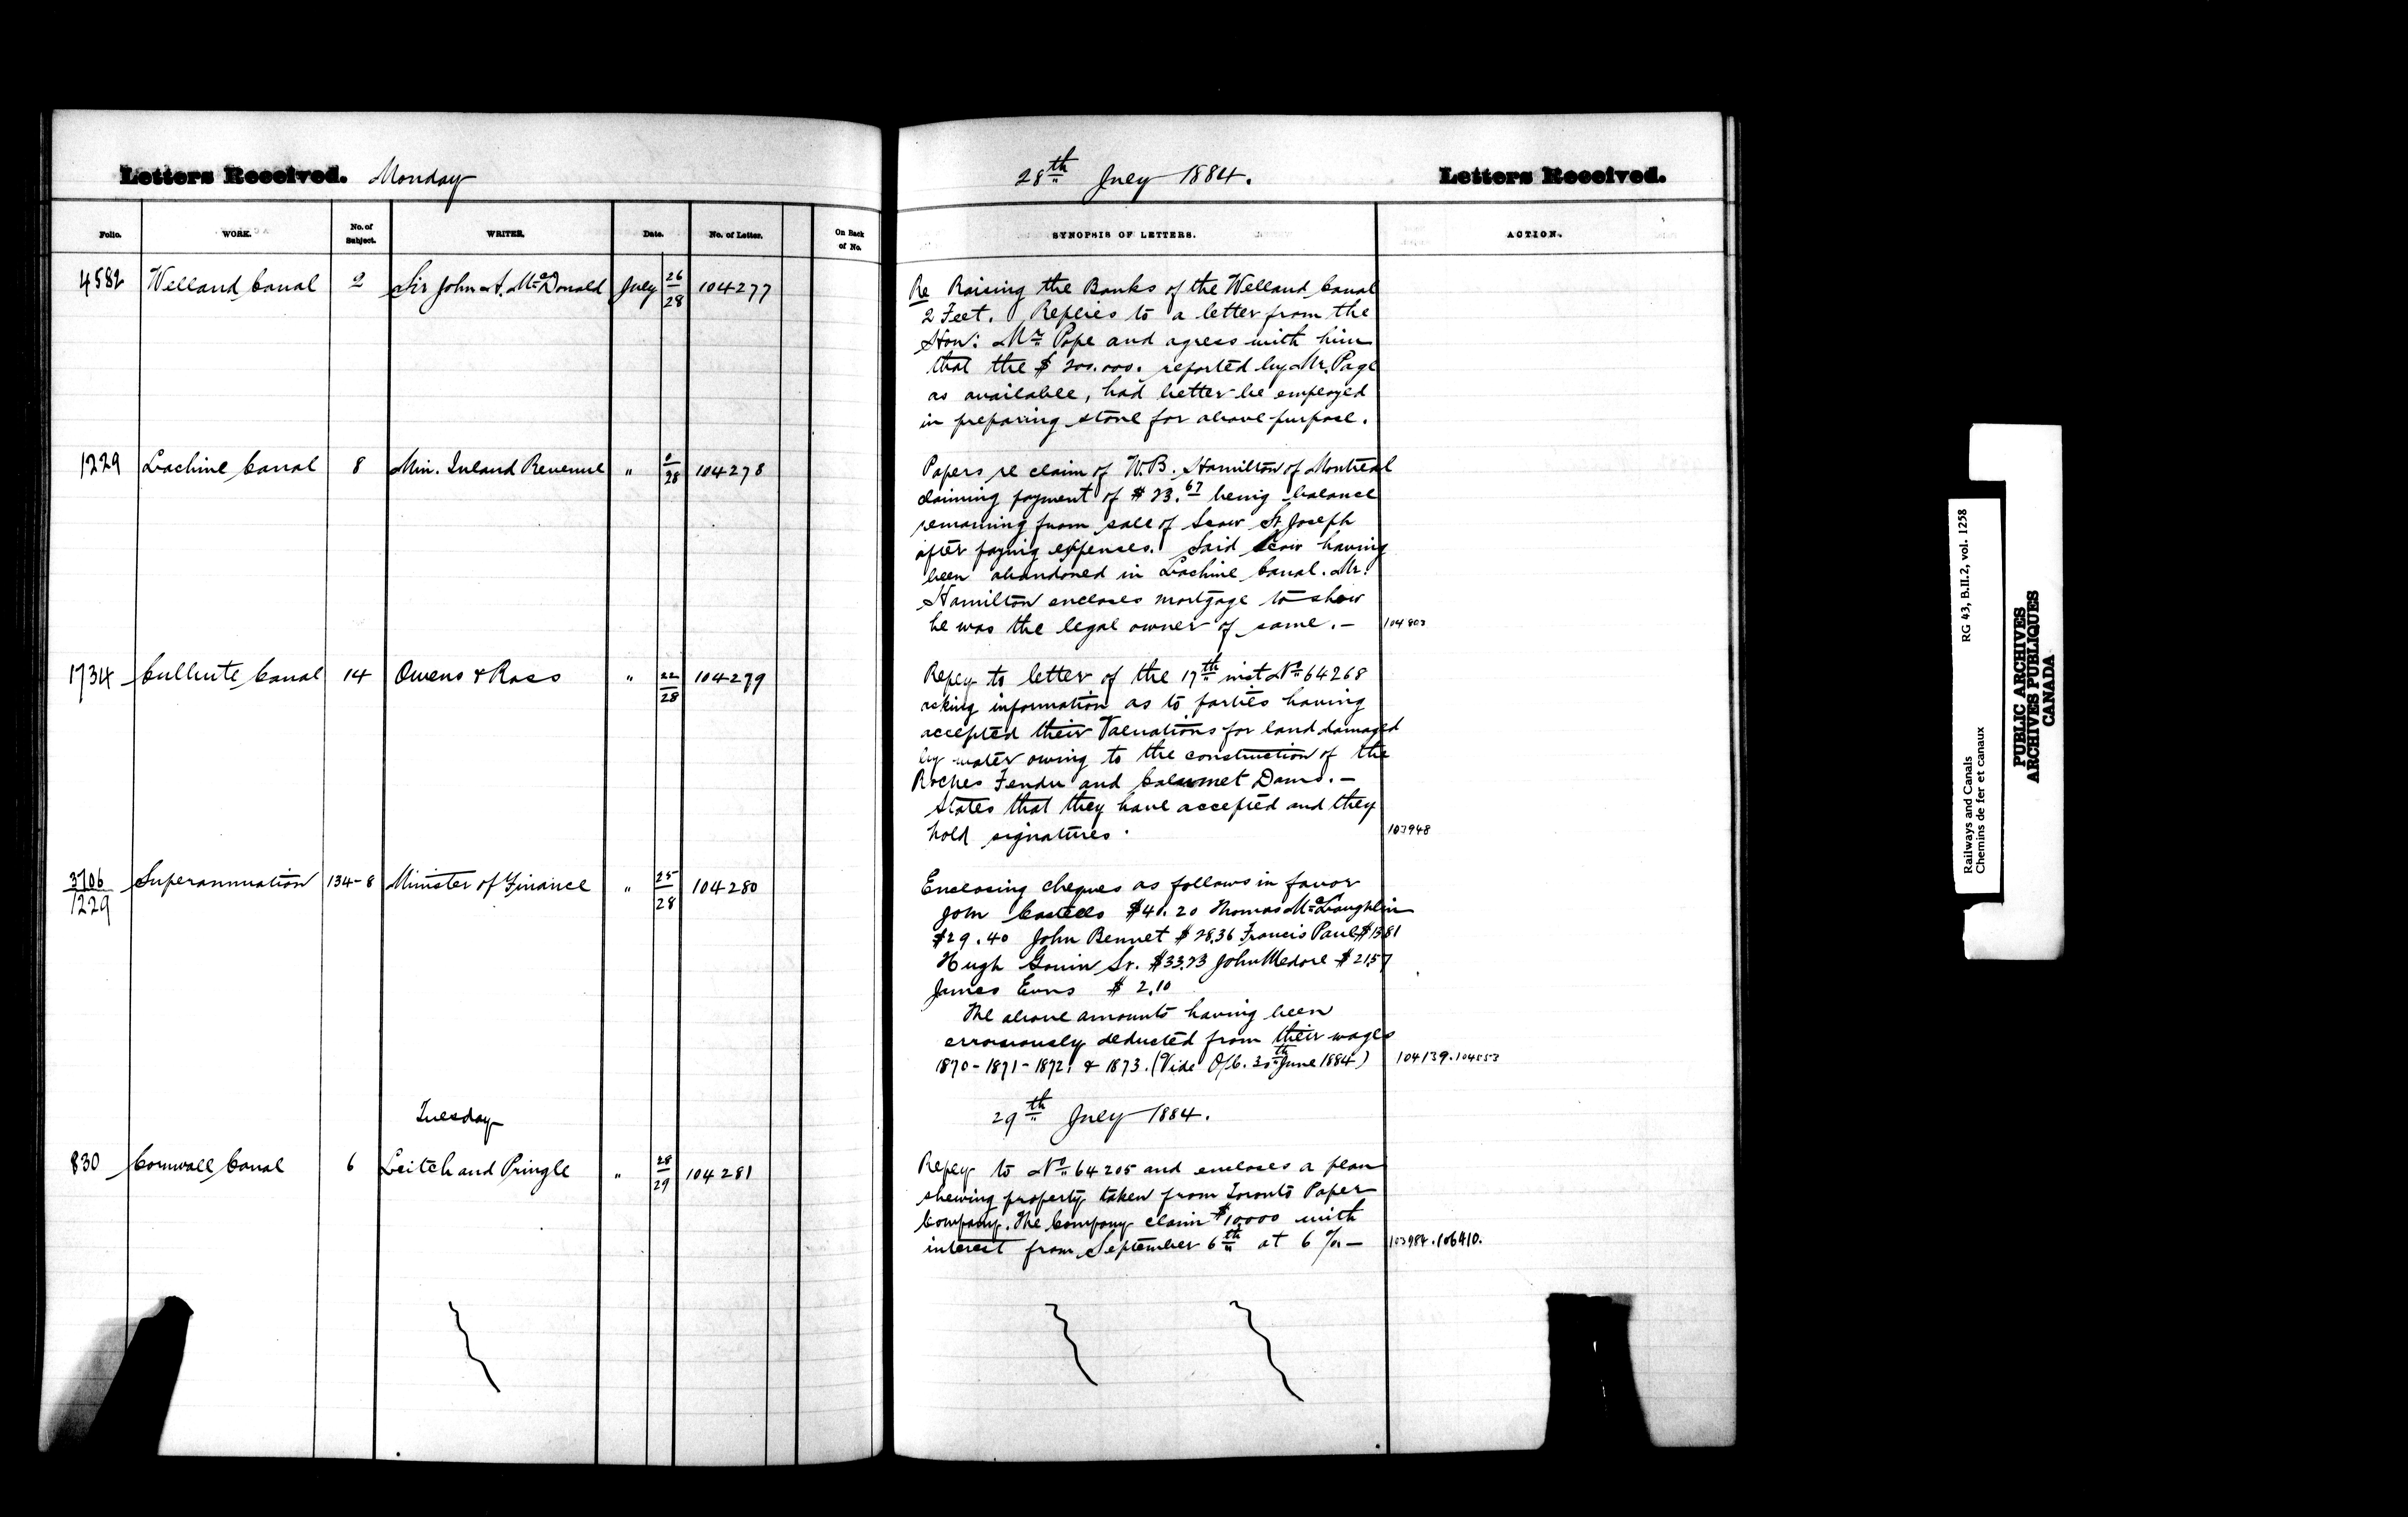 Letters Received. Monday
28th July 1884.
Letters Received.
Folio. WORK. No. of Subject. WRITER. Date. No. of Letter. On Back of No.
SYNOPSIS OF LETTERS. ACTION.
4582 Welland Canal 2 Sir John A. McDonald July 26/28 104277
Re Raising the Banks of the Welland Canal
2 Feet. Replies to a letter from the
Hon: Mr Pope and agrees with him
that the $200.000. reported by Mr. Page
as available, had better be employed
in preparing stone for above purpose.
1229 Lachine Canal 8 Min. Inland Revenue " /28 104278
Papers re claim of W.B. Hamilton of Montreal
claiming payment of $23.67 being balance
remaining from sale of Scow St Joseph
after paying expenses. Said Scow having
been abandoned in Lachine Canal. Mr.
Hamilton encloses mortgage to show
he was the legal owner of same. —
104803
1734 Culbute Canal 14 Owens & Ross " 22/28 104279
Reply to letter of the 17th inst No 64268
asking information as to parties having
accepted their Valuations for land damaged
by water owing to the construction of the
Roches Fendu and Calumet Dams. —
States that they have accepted and they
hold signatures.
103948
3706/1229 Superannuation 134-8 Minister of Finance " 25/28 104280
Enclosing cheques as follows in favor
John Costello $41.20 Thomas McLaughlin
$29.40 John Bennet $28.36 Francis Paul $13.81
Hugh Gonin Sr. $33.73 John Medore $21.57
James Evans $2.10
The above amounts having been
erroniously deducted from their wages
1870-1871-1872. & 1873. (Vide O/C. 30th June 1884)
104139. 104553
Tuesday
29th July 1884.
830 Cornwall Canal 6 Leitch and Pringle " 28/29 104281
Reply to No 64205 and encloses a plan
shewing property taken from Toronto Paper
Company. The Company claim $10,000 with
interest from September 6th at 6% —
103984. 106410.
Railways and Canals RG 43, B.II.2, vol. 1258
Chemins de fer et canaux
PUBLIC ARCHIVES
ARCHIVES PUBLIQUES
CANADA